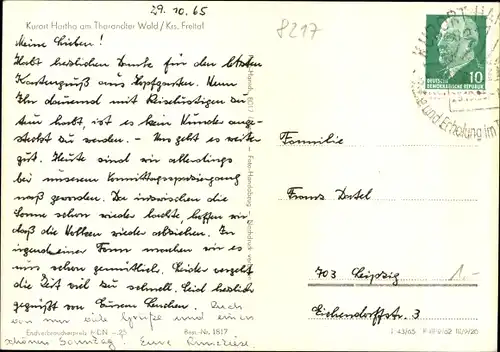 29.10.65
8217
Kurort Hartha am Tharandter Wald / Krs. Freital
Meine Lieben!
Habt herzlichen Dank für den letzten
Kartengruß aus Hopfgarten. Wenn
Ihr dauernd mit Reiselustigen zu
tun habt, ist es kein Wunder ange-
steckt zu werden. – Uns geht es weiter
gut. Heute sind wir allerdings
bei unserem Vormittagsspaziergang
naß geworden. Da inzwischen die
Sonne schon wieder lachte, hoffen wir
daß die Wolken wieder abziehen. In
irgendeiner Form machen wir es
uns schon gemütlich. Leider vergeht
die Zeit viel zu schnell. Seid herzlich
gegrüßt von Eurem Lenchen. Auch
von mir viele Grüße und einen
schönen Sonntag! Eure Anneliese
Endverbraucherpreis MDN -,25
Best.-Nr. 1817
DEUTSCHE
DEMOKRATISCHE REPUBLIK
10
KURORT HA
und Erholung im T
Familie
Franz
703 Leipzig
Eichendorffstr. 3
1.-